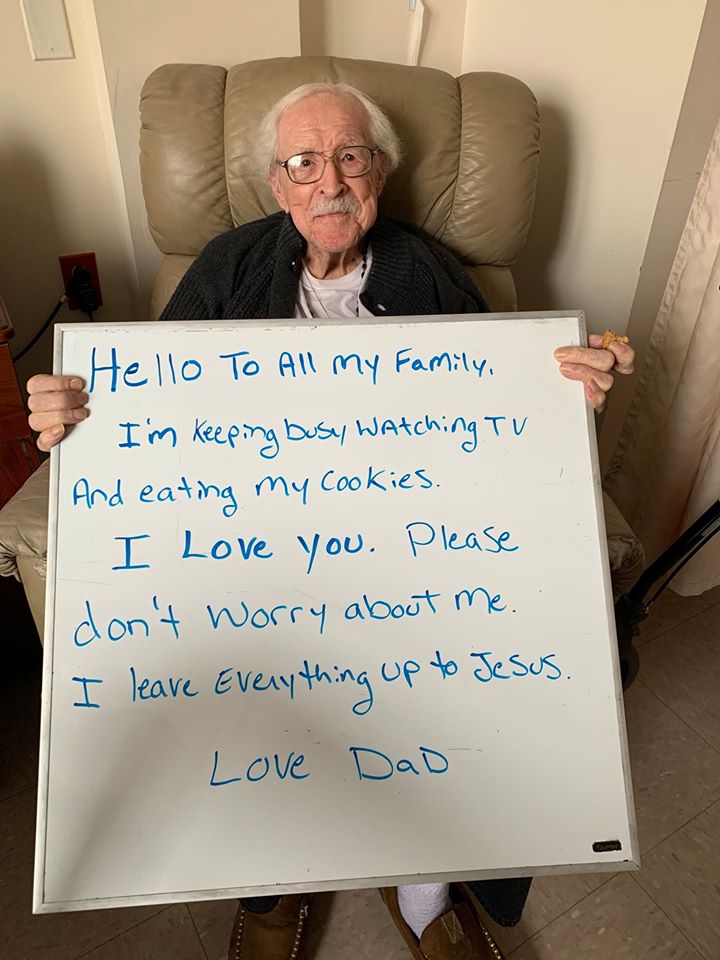 Hello To All my Family.
I'm Keeping busy WAtching TV
And eating my Cookies.
I Love you. Please
don't Worry about me.
I leave Everything up to Jesus.
Love DaD